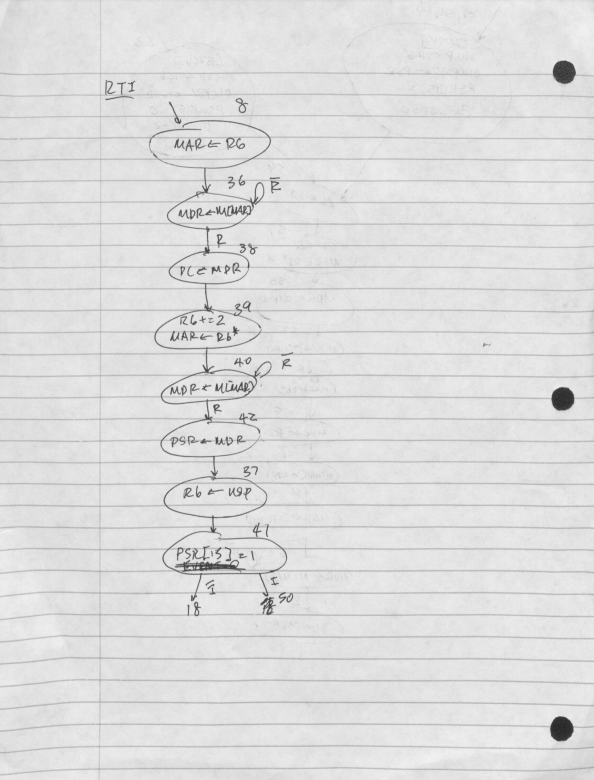 RTI
8
MAR ← R6
36
R̅
MDR ← M[MAR]
R
38
PC ← MDR
39
R6 += 2
MAR ← R6*
40
R̅
MDR ← M[MAR]
R
42
PSR ← MDR
37
R6 ← USP
41
PSR[15] = 1
I̅
I
18
50